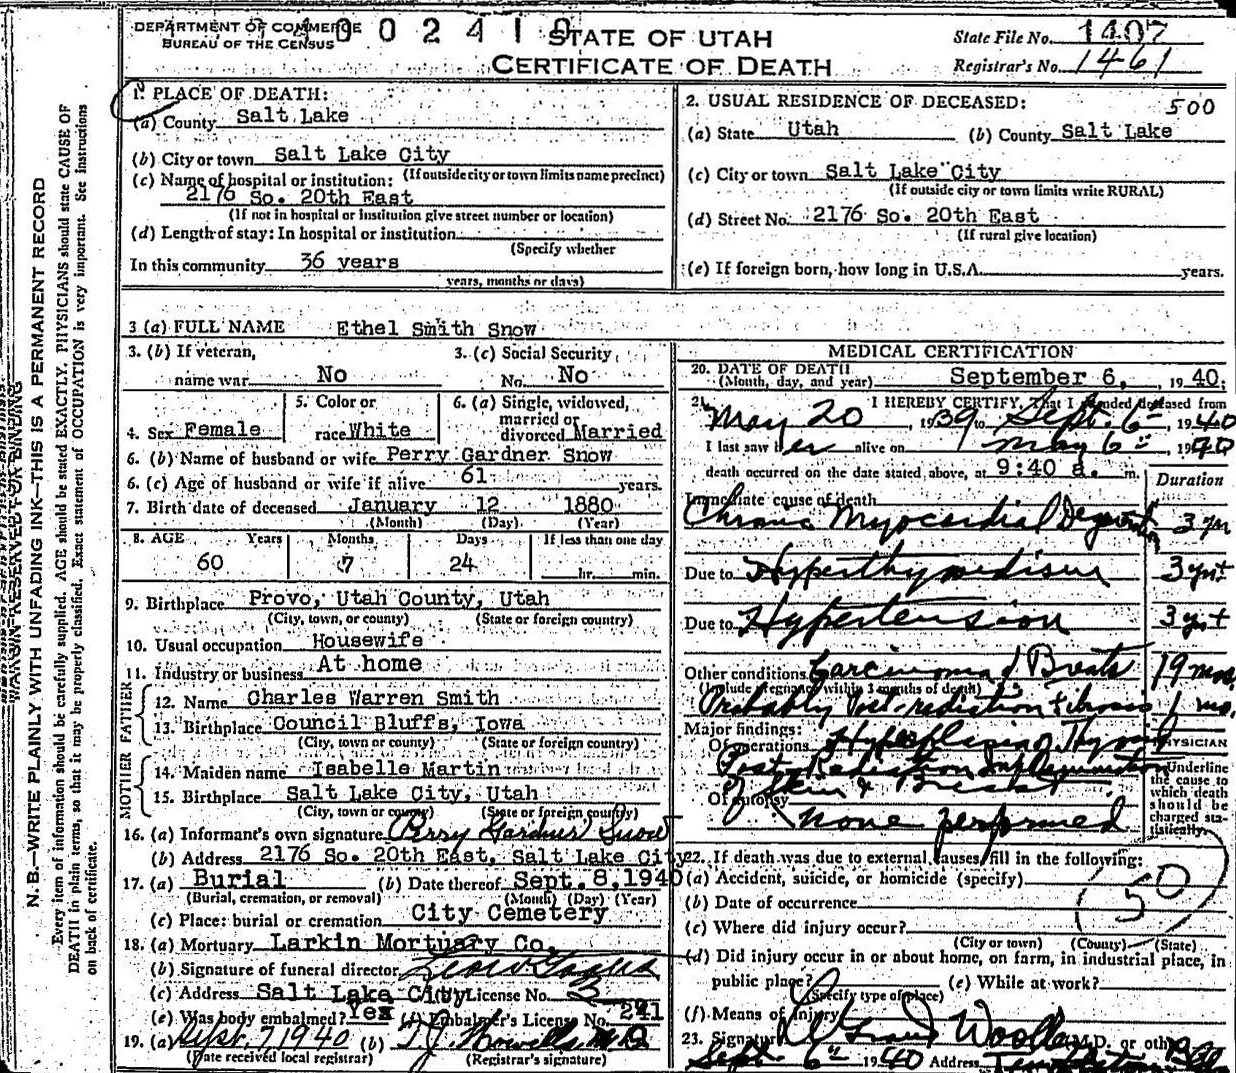 DEPARTMENT OF COMMERCE
BUREAU OF THE CENSUS
STATE OF UTAH
CERTIFICATE OF DEATH
State File No. 1407
Registrar's No. 1461
N. B.—WRITE PLAINLY WITH UNFADING INK—THIS IS A PERMANENT RECORD
Every item of information should be carefully supplied. AGE should be stated EXACTLY. PHYSICIANS should state CAUSE OF
DEATH in plain terms, so that it may be properly classified. Exact statement of OCCUPATION is very important. See instructions
on back of certificate.
MARGIN RESERVED FOR BINDING
1. PLACE OF DEATH:
(a) County Salt Lake
(b) City or town Salt Lake City
(If outside city or town limits name precinct)
(c) Name of hospital or institution:
2176 So. 20th East
(If not in hospital or institution give street number or location)
(d) Length of stay: In hospital or institution
(Specify whether
In this community 36 years
years, months or days)
2. USUAL RESIDENCE OF DECEASED: 500
(a) State Utah (b) County Salt Lake
(c) City or town Salt Lake City
(If outside city or town limits write RURAL)
(d) Street No. 2176 So. 20th East
(If rural give location)
(e) If foreign born, how long in U.S.A. years.
3 (a) FULL NAME Ethel Smith Snow
3. (b) If veteran, name war No
3. (c) Social Security No. No
4. Sex Female
5. Color or race White
6. (a) Single, widowed, married or divorced Married
6. (b) Name of husband or wife Perry Gardner Snow
6. (c) Age of husband or wife if alive 61 years.
7. Birth date of deceased January 12 1880
(Month) (Day) (Year)
8. AGE Years Months Days If less than one day
60 7 24 hr. min.
9. Birthplace Provo, Utah County, Utah
(City, town, or county) (State or foreign country)
10. Usual occupation Housewife
11. Industry or business At home
FATHER
12. Name Charles Warren Smith
13. Birthplace Council Bluffs, Iowa
(City, town or county) (State or foreign country)
MOTHER
14. Maiden name Isabelle Martin
15. Birthplace Salt Lake City, Utah
(City, town or county) (State or foreign country)
16. (a) Informant's own signature Perry Gardner Snow
(b) Address 2176 So. 20th East, Salt Lake City
17. (a) Burial (b) Date thereof Sept. 8, 1940
(Burial, cremation, or removal) (Month) (Day) (Year)
(c) Place: burial or cremation City Cemetery
18. (a) Mortuary Larkin Mortuary Co.
(b) Signature of funeral director
(c) Address Salt Lake City License No. 3
(e) Was body embalmed? Yes (f) Embalmer's License No. 241
19. (a) Sept. 7 1940 (b) T.J. Howells M D
(Date received local registrar) (Registrar's signature)
MEDICAL CERTIFICATION
20. DATE OF DEATH
(Month, day, and year) September 6, 1940
21. I HEREBY CERTIFY, That I attended deceased from
May 20, 1939 to Sept. 6th, 1940
I last saw her alive on May 6th, 1940
death occurred on the date stated above, at 9:40 a. m.
Duration
Immediate cause of death
Chronic Myocardial Degeneration 3 yrs
Due to Hyperthyroidism 3 yrs+
Due to Hypertension 3 yrs+
Other conditions Carcinoma of Breasts 19 mos.
(Include pregnancy within 3 months of death)
Probably Post-radiation Fibrosis 1 mo.
Major findings:
Of operations Hyperplasia of Thyroid
Post Radiation
of Skin & Breast
Of autopsy None performed
PHYSICIAN
Underline
the cause to
which death
should be
charged sta-
tistically.
22. If death was due to external causes, fill in the following:
(a) Accident, suicide, or homicide (specify)
(b) Date of occurrence 50
(c) Where did injury occur?
(City or town) (County) (State)
(d) Did injury occur in or about home, on farm, in industrial place, in
public place? (e) While at work?
(Specify type of place)
(f) Means of Injury
23. Signature LeGrand Woolley (M.D. or other)
Sept. 6th 1940 Address